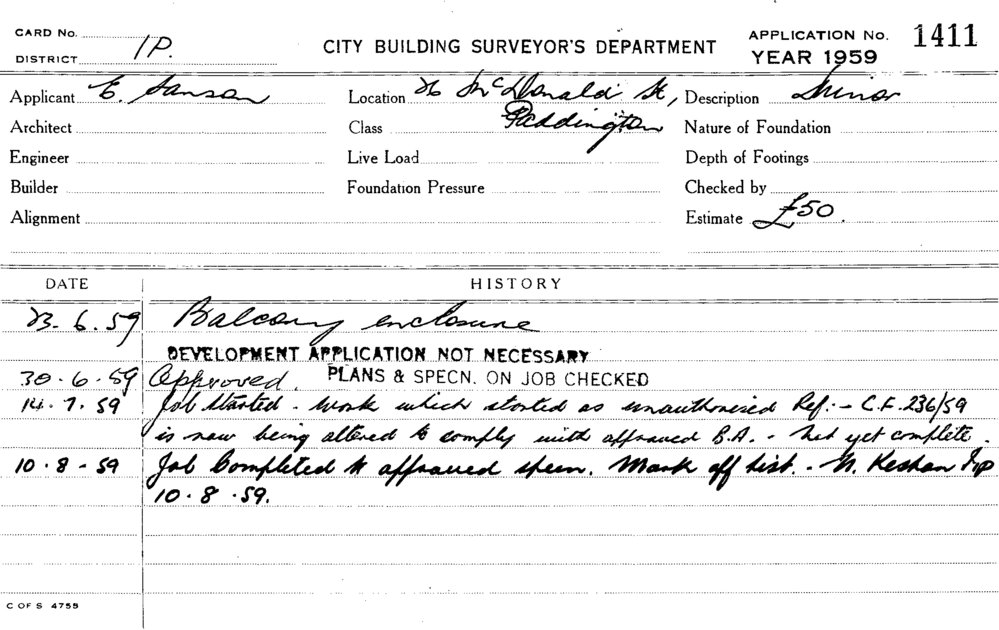 CARD No.
DISTRICT 1P.
CITY BUILDING SURVEYOR'S DEPARTMENT
APPLICATION No. 1411
YEAR 1959
Applicant E. Sanson
Location 26 McDonald St, Paddington
Description Minor
Architect
Class
Nature of Foundation
Engineer
Live Load
Depth of Footings
Builder
Foundation Pressure
Checked by
Alignment
Estimate £50.
DATE HISTORY
23.6.59 Balcony enclosure
DEVELOPMENT APPLICATION NOT NECESSARY
30.6.59 Approved. PLANS & SPECN. ON JOB CHECKED
14.7.59 Job Started - Work which started as unauthorised Ref:- C.F. 236/59
is now being altered to comply with approved B.A. - Not yet complete.
10.8-59 Job Completed to approved specn. Mark off List. - Insp
10.8.59.
C OF S 4755